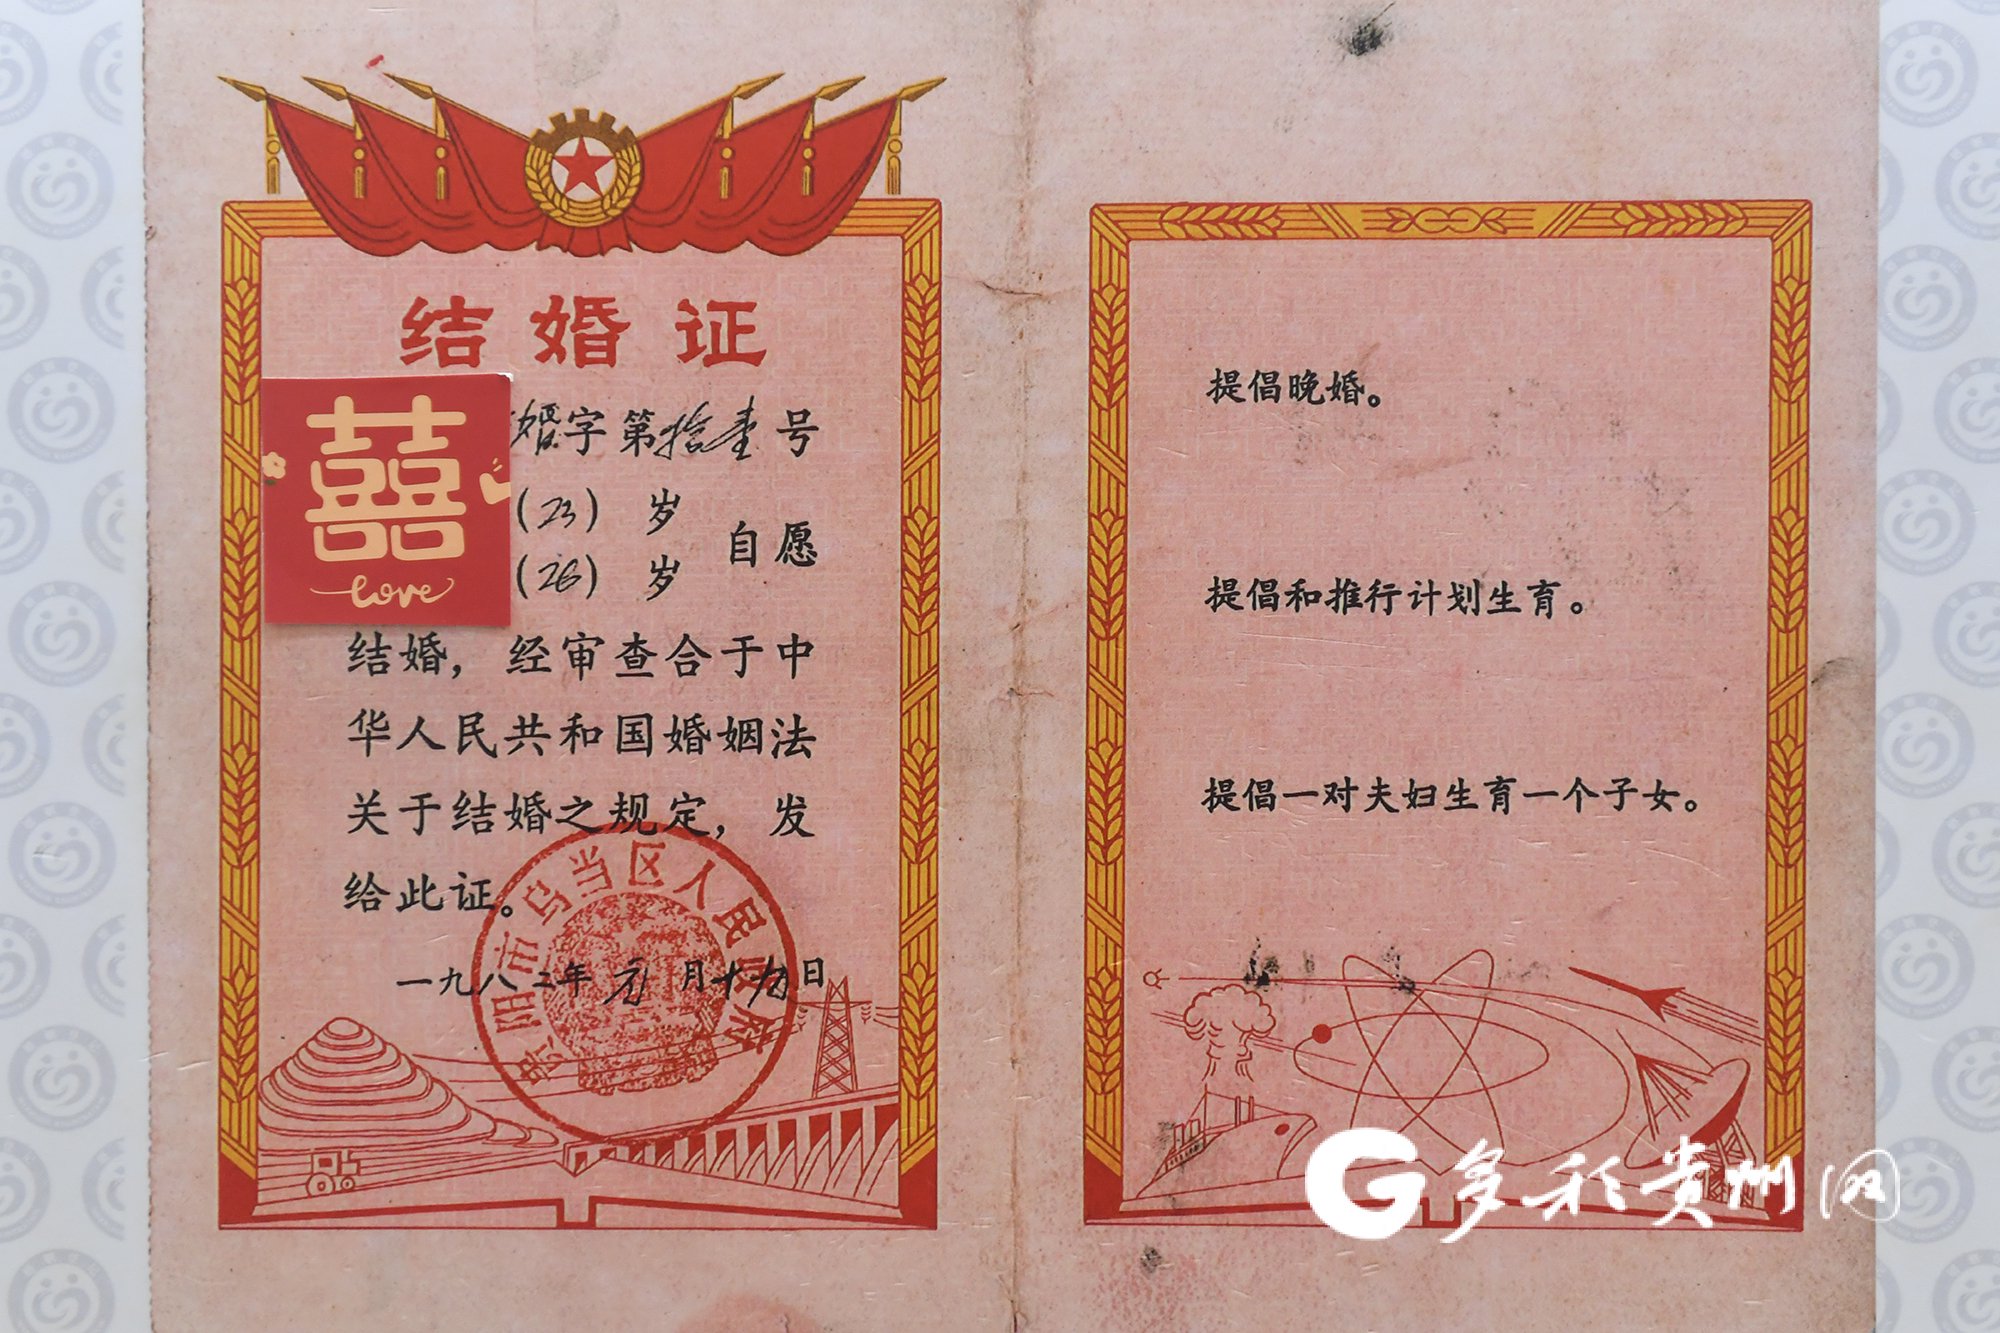 结婚证
婚字第拾壹号
(23) 岁
(26) 岁
自愿
囍
love
结婚，经审查合于中
华人民共和国婚姻法
关于结婚之规定，发
给此证。
一九八二年元月十九日
贵阳市乌当区人民政府
提倡晚婚。
提倡和推行计划生育。
提倡一对夫妇生育一个子女。
多彩贵州网